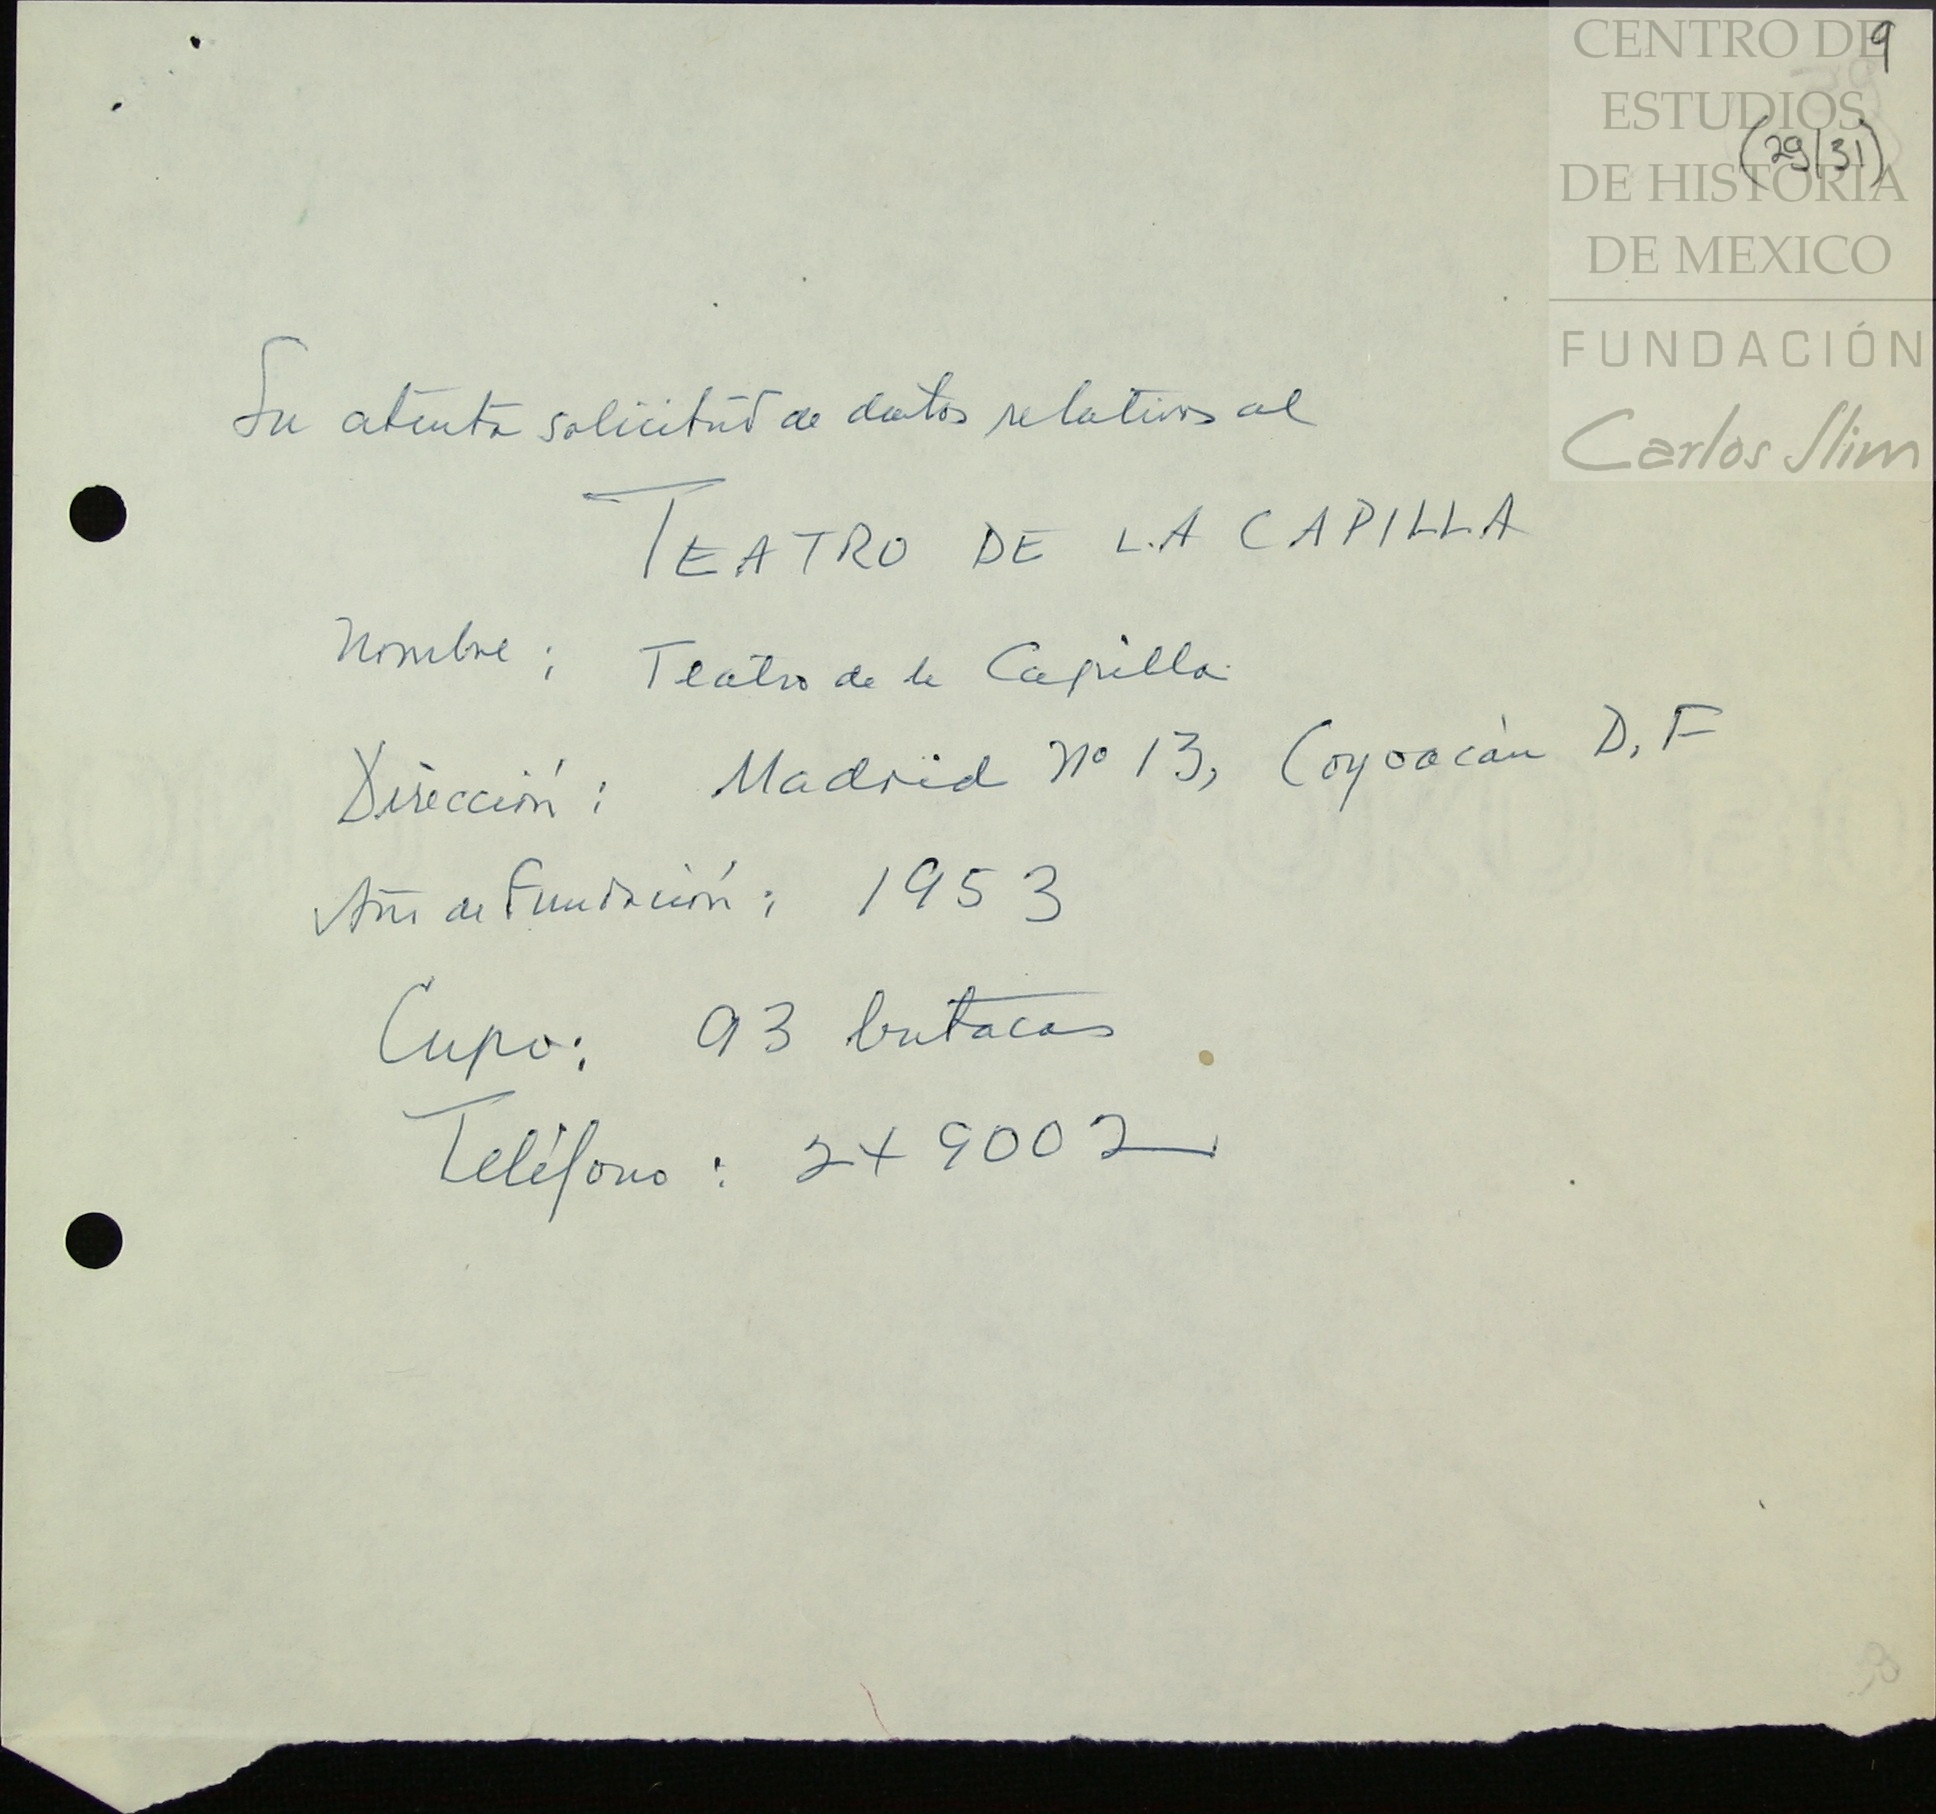 CENTRO DE
ESTUDIOS
DE HISTORIA
DE MEXICO
FUNDACIÓN
Carlos Slim
9
(29/31)
Su atenta solicitud de datos relativos al
TEATRO DE LA CAPILLA
Nombre: Teatro de la Capilla
Dirección: Madrid No 13, Coyoacán D.F
Año de Fundación: 1953
Cupo: 93 butacas
Teléfono: 249002